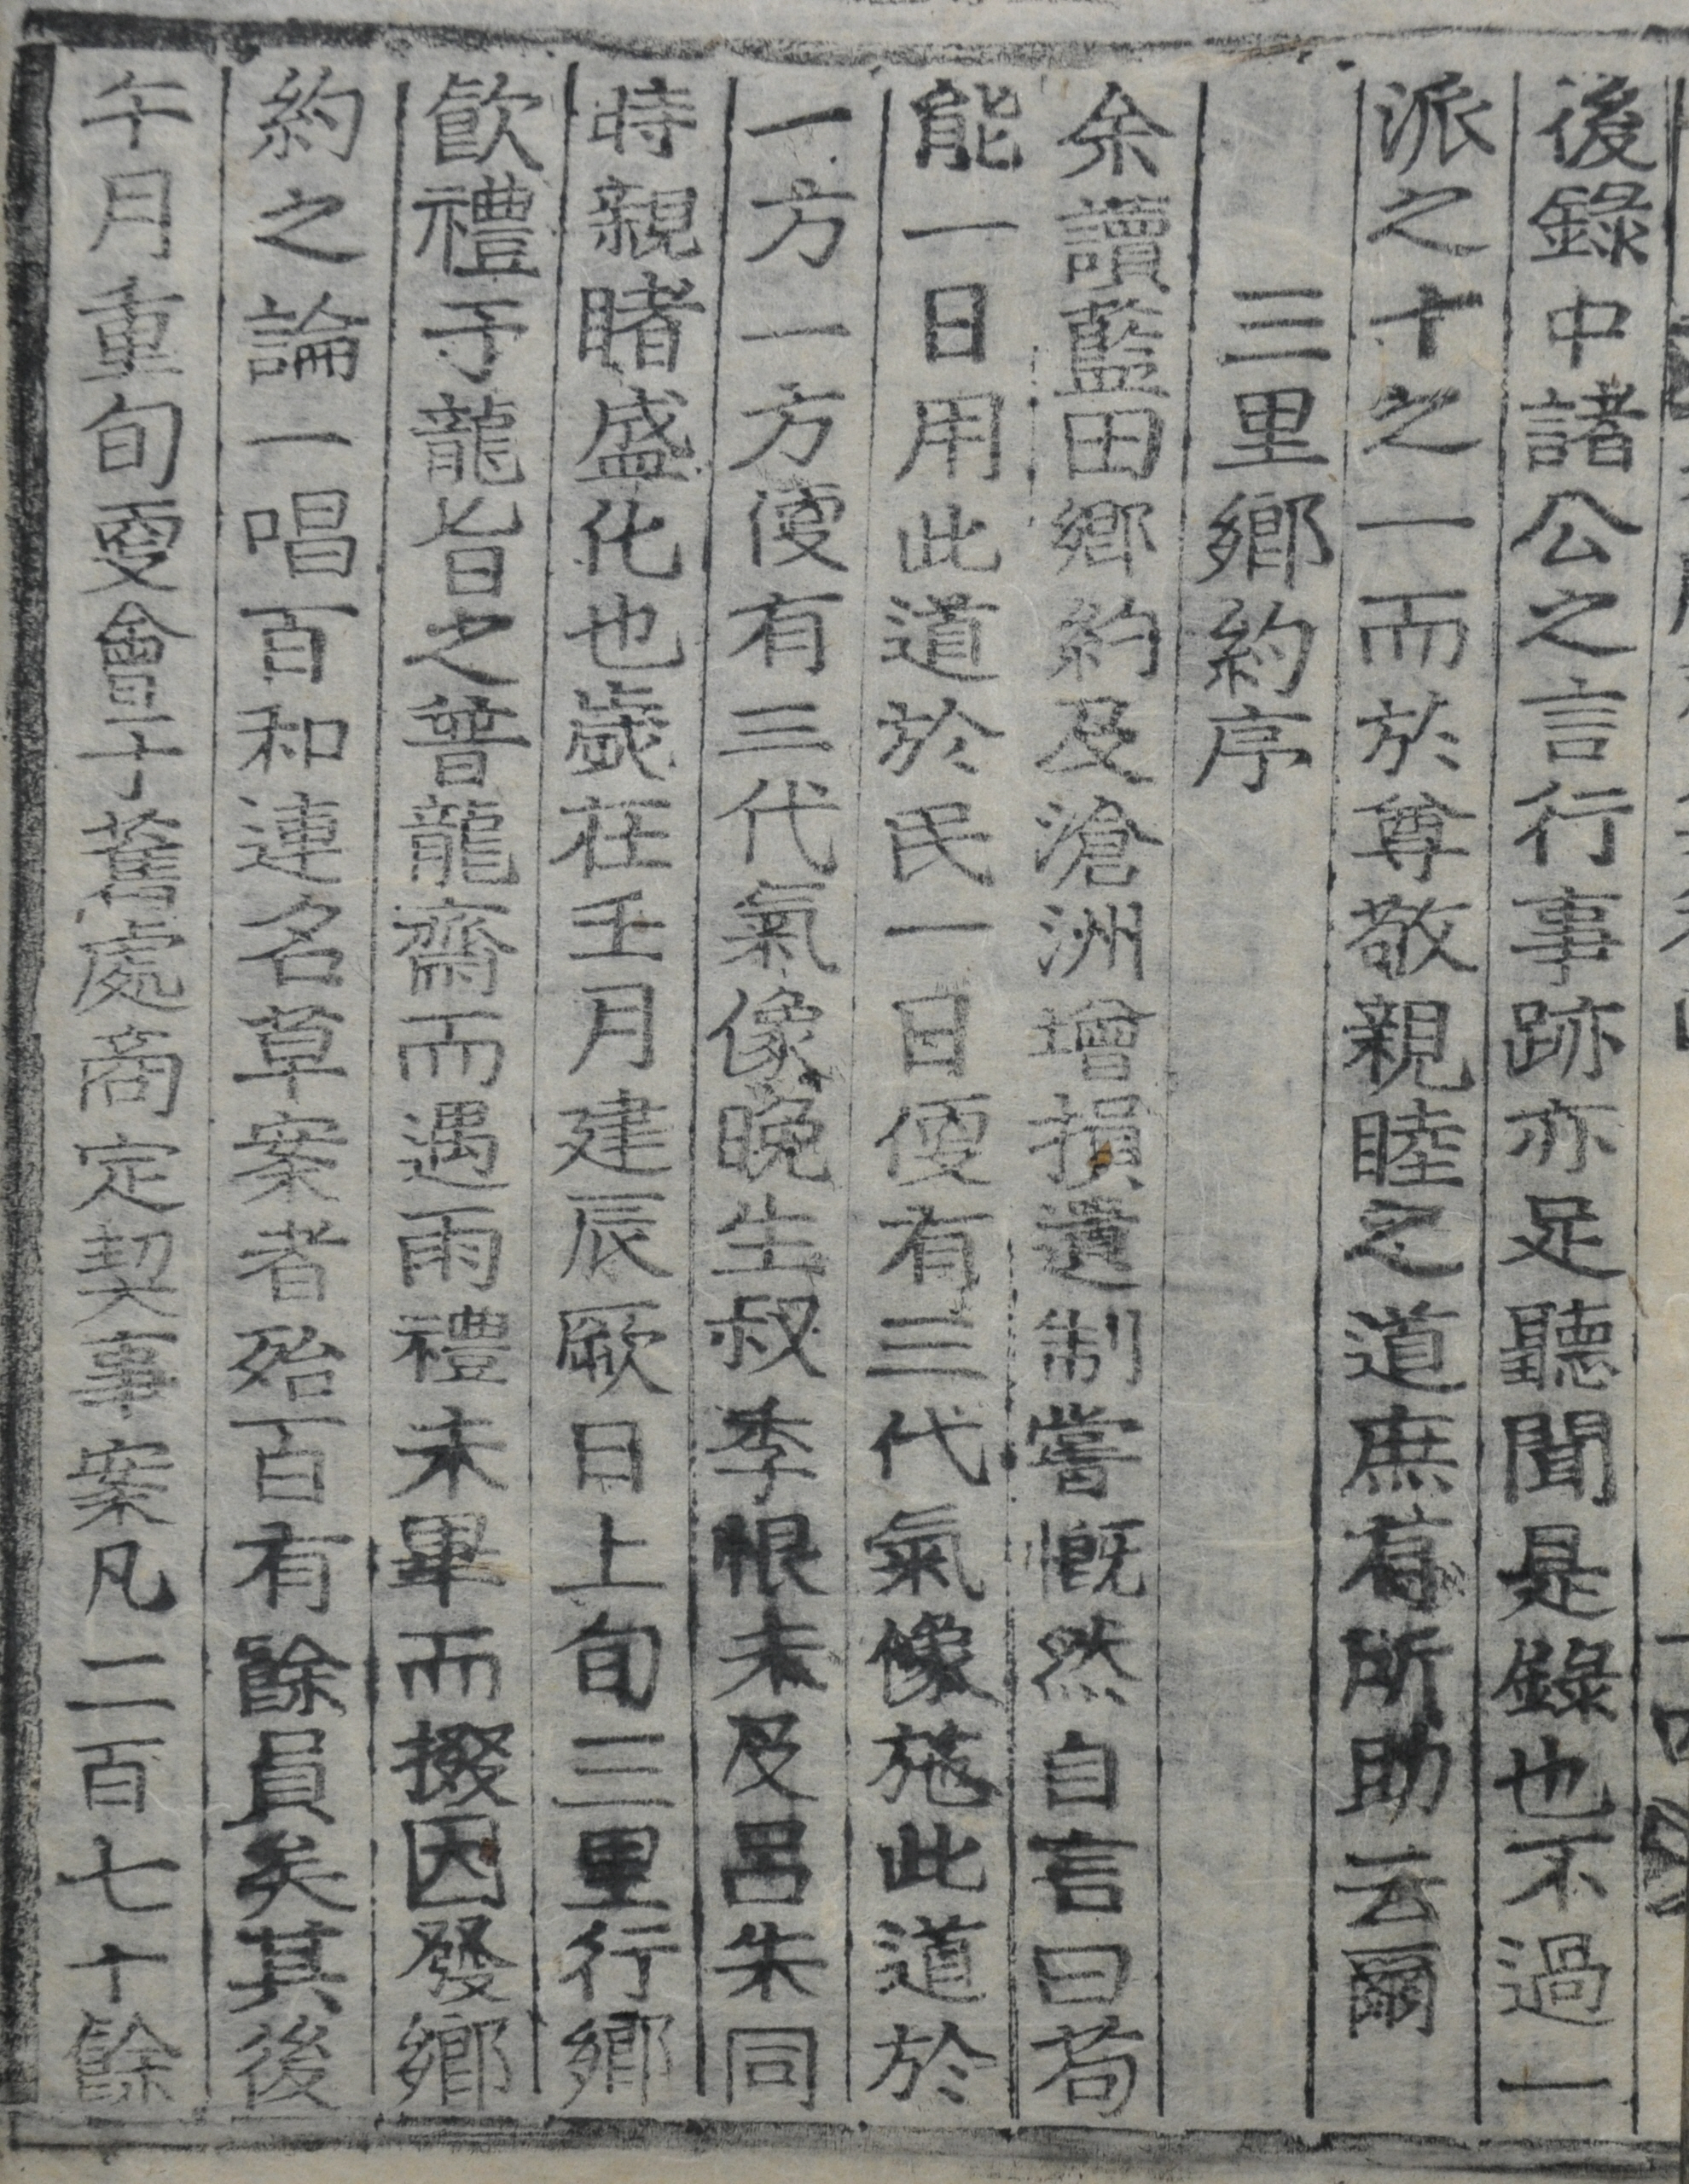 後錄中諸公之言行事跡亦足聽聞是錄也不過一
派之十之一而於尊敬親睦之道庶有所助云爾
三里鄉約序
余讀藍田鄉約及滄洲增損遺制嘗慨然自言曰苟
能一日用此道於民一日便有三代氣像施此道於
一方一方便有三代氣像晚生叔季恨未及呂朱同
時親睹盛化也歲在壬月建辰厥日上旬三里行鄉
飮禮于龍旨之普龍齋而遇雨禮未畢而掇因發鄉
約之論一唱百和連名草案者殆百有餘員矣其後
午月重旬更會于舊處商定契事案凡二百七十餘